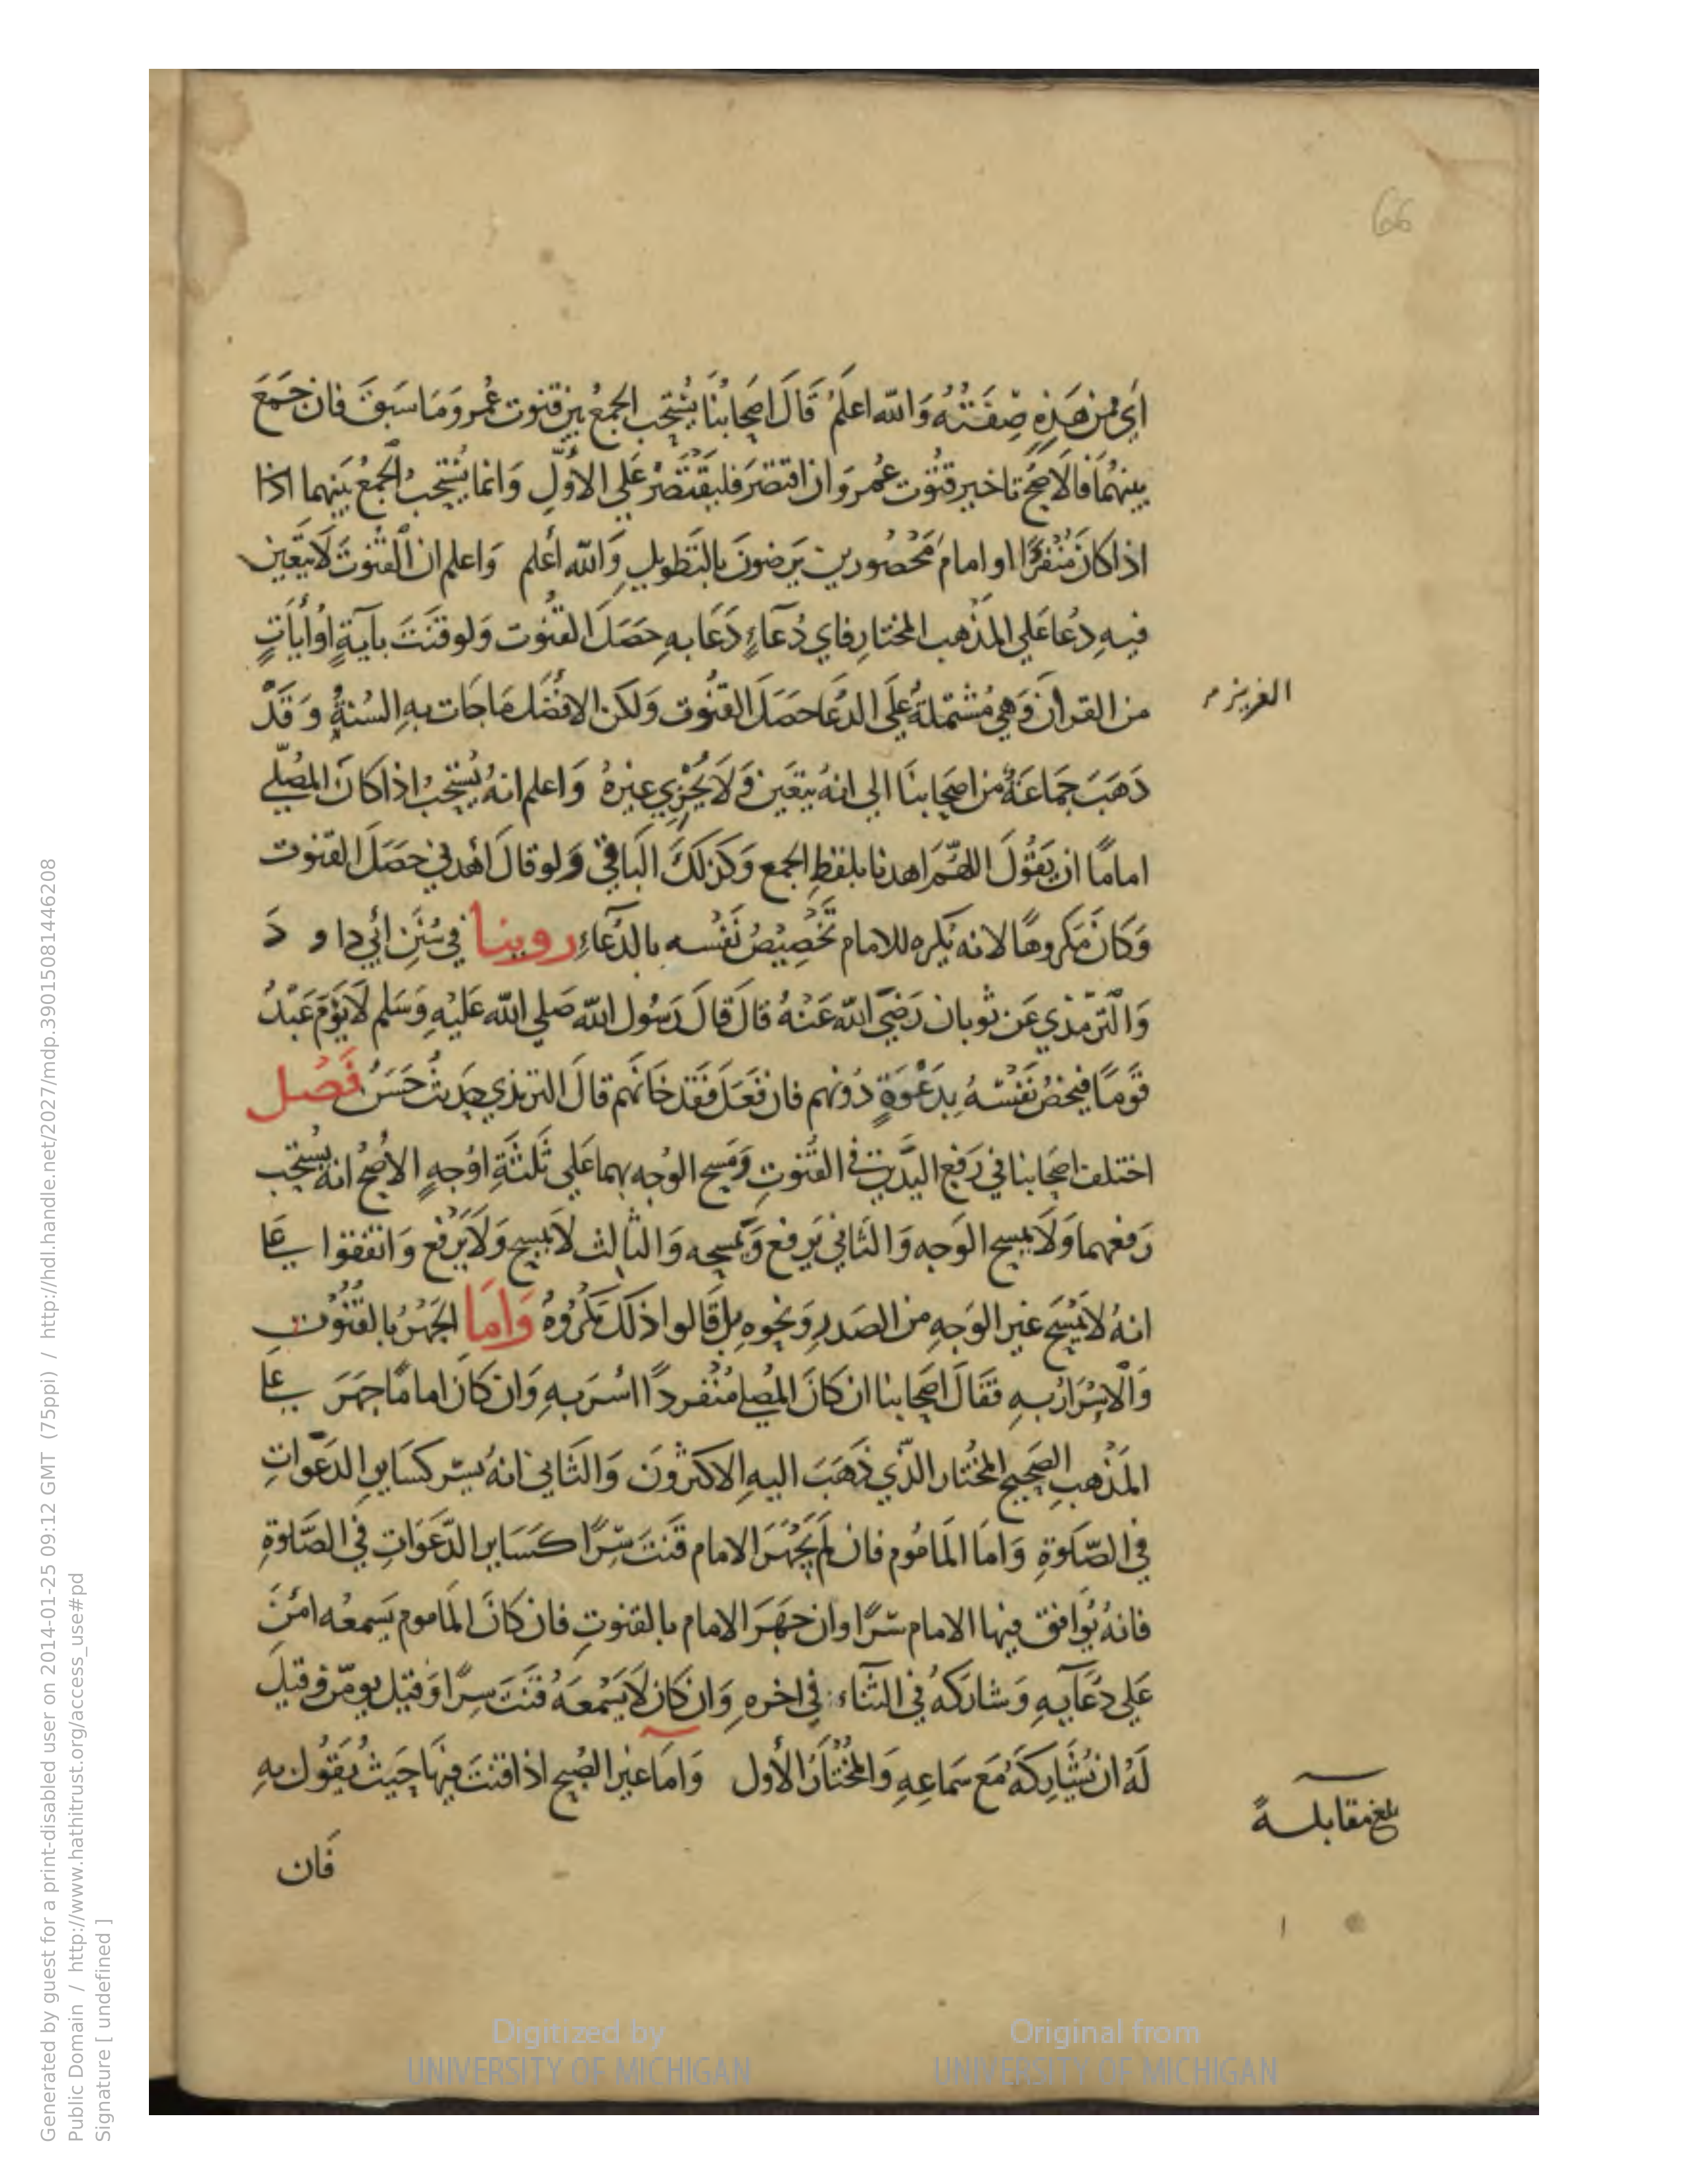 66
اَي ممن هَذِهِ صِفَتُهُ وَالله اعلَمُ قَالَ اصَحابُنَا يُسْتَحِب الجمعُ بين قنوت عُمر وَمَا سَبَقَ فان جَمَعَ
بينهُمَا فالَاصَحُّ تاخير قنُوت عُمر وَان اقتصَرَ فليقتَصْرْ عَلي الاَوَّلِ وَانما يُسْتَحِبُ الجمعُ بَينهما اذا
اذا كانَ مُنْفَرًا او امامَ مَحْصُورين يَرضونَ بالتَطويلِ وَالله أعلم وَاعلم ان القنُوتَ لَا يَتَعَين
فيهِ دُعا عَلي المذْهب المختارِ فاي دُعَاءٍ دَعَا بِهِ حَصَلَ القنُوت وَلو قنَتَ بآيةٍ اوْ أيَاتٍ
من القرأن وَهي مُشْتملةُ عَلَي الدعَا حَصَلَ القُنُوت وَلكن الافضَل مَا جَات بهِ السُنةُ وَ قَدْ
العزيز م
ذَهَبَ جَمَاعَةُ من اصَحابنَا الي انهُ يتعَين وَلَا يُجْزِي غيرهُ وَاعلم انهُ يُستحبُ اذا كانَ المصُلّي
امامًا ان يَقُولَ اللهُمَّ اهدنا بلفظِ الجمع وَكذلكَ البَاقي وَلو قالَ اهْدني حَصَلَ القنوت
وَكانَ مَكروهًا لانه يكره للامام تَخْصِيْصُ نَفْسه بالدُعَاءِ روينا في سُنَنِ ابَي داو دَ
وَالترمذي عَن ثوبان رَضَيَ الله عَنْهُ قالَ قالَ رَسُول الله صَلي الله عَليْهِ وَسَلم لَا يَؤمَ عَبْدُ
قَومًا فيخصُ نَفْسَهُ بِدَعْوَةٍ دُونهم فان فَعَلَ فَقَد خانهم قالَ الترمذي حَدِيثُ حَسَنُ فَصْل
اختلف اصَحابنا في رَفع اليَدَين في القُنُوتِ وَمَسح الوُجه بهما عَلي ثَلثَةِ اوْجهٍ الاصَحُ انهُ يسُتحب
رَفعهما وَلَا يمسح الوَجه وَالثاني يَرفع وَيَمسحه وَالثالث لَا يمسح وَلَا يَرفع وَاتفقوا علي
انهُ لَا يمْسَح غير الوَجهِ من الصَدرِ وَنحوه بل قالوا ذلكَ مَكرُوهُ وَامَا الجَهْرُ بالقُنُوت
وَالاسْرَارُ بهِ فقالَ اصَحابنا ان كانَ المصُلي مُنْفردًا اسَر بهِ وَان كانَ امامًا جهَرَ علي
المذهبِ الصَحيح المخُتار الذي ذَهَبَ اليهِ الاكثرُونَ وَالثاني انهُ يسّر كسَاير الدَعَواتِ
في الصَلوةِ وَامَا المامُوم فان لم يَجْهَرَ الامام قَنتَ سِّرًا كسَايرِ الدَّعَوَاتِ في الصَّلوةِ
فانهُ يُوافق فيها الامام سِّرًا وان جهَرَ الامام بالقنوتِ فان كانَ المَاموم يَسمعُه امَّنَ
عَلي دُعَآيهِ وَشارَكهُ في الثناء في اخرهِ وَان كان لَا يَسْمعَهُ قنَتَ سِرًا وَقيل يومّن وَقيل
لَهُ ان يُشَارِكهَ مَع سَماعِهِ وَالمختَارُ الأول وَامَا غير الصُبح اذا قنتَ فيهَا حَيثُ يَقُول بهِ
بلغ مقابلةً
فَان
Digitized by
UNIVERSITY OF MICHIGAN
Original from
UNIVERSITY OF MICHIGAN
Generated by guest for a print-disabled user on 2014-01-25 09:12 GMT (75ppi) / http://hdl.handle.net/2027/mdp.39015081446208
Public Domain / http://www.hathitrust.org/access_use#pd
Signature [ undefined ]